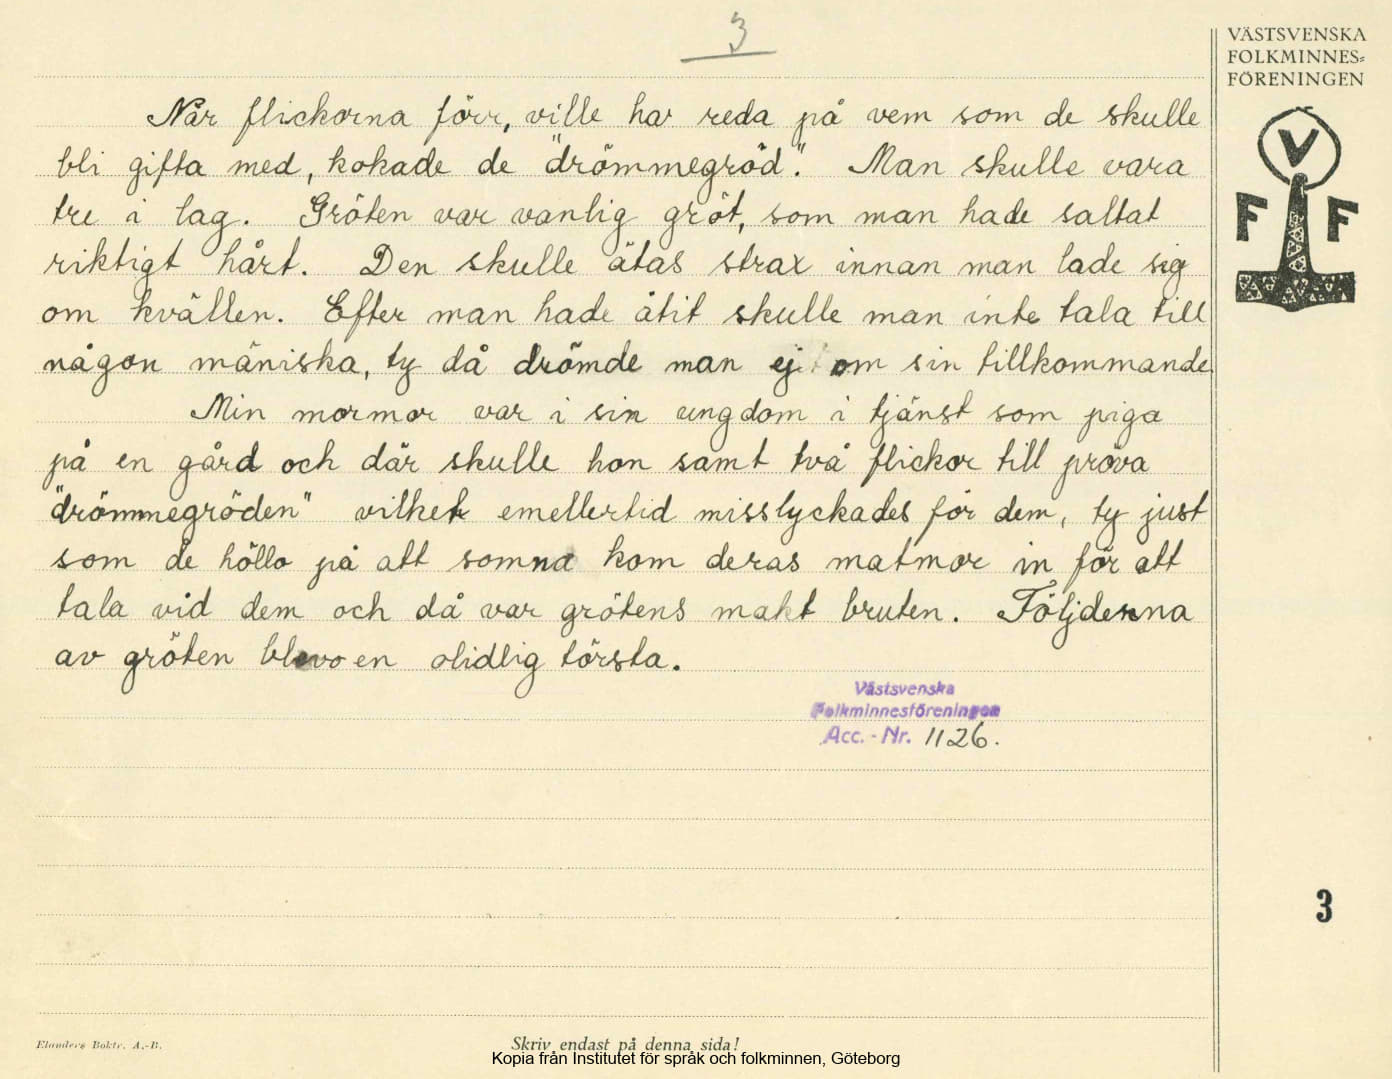 3
VÄSTSVENSKA
FOLKMINNES=
FÖRENINGEN
V
F F
När flickorna förr, ville ha reda på vem som de skulle
bli gifta med, kokade de "drömmegröd". Man skulle vara
tre i lag. Gröten var vanlig gröt, som man hade saltat
riktigt hårt. Den skulle ätas strax innan man lade sig
om kvällen. Efter man hade ätit skulle man inte tala till
någon mäniska, ty då drömde man ej om sin tillkommande.
Min mormor var i sin ungdom i tjänst som piga
på en gård och där skulle hon samt två flickor till pröva
"drömmegröden" vilket emellertid misslyckades för dem, ty just
som de höllo på att somna kom deras matmor in för att
tala vid dem och då var grötens makt bruten. Följderna
av gröten blevo en olidlig törsta.
Västsvenska
Folkminnesföreningen
Acc. - Nr. 1126.
3
Elanders Boktr. A.-B.
Skriv endast på denna sida!
Kopia från Institutet för språk och folkminnen, Göteborg